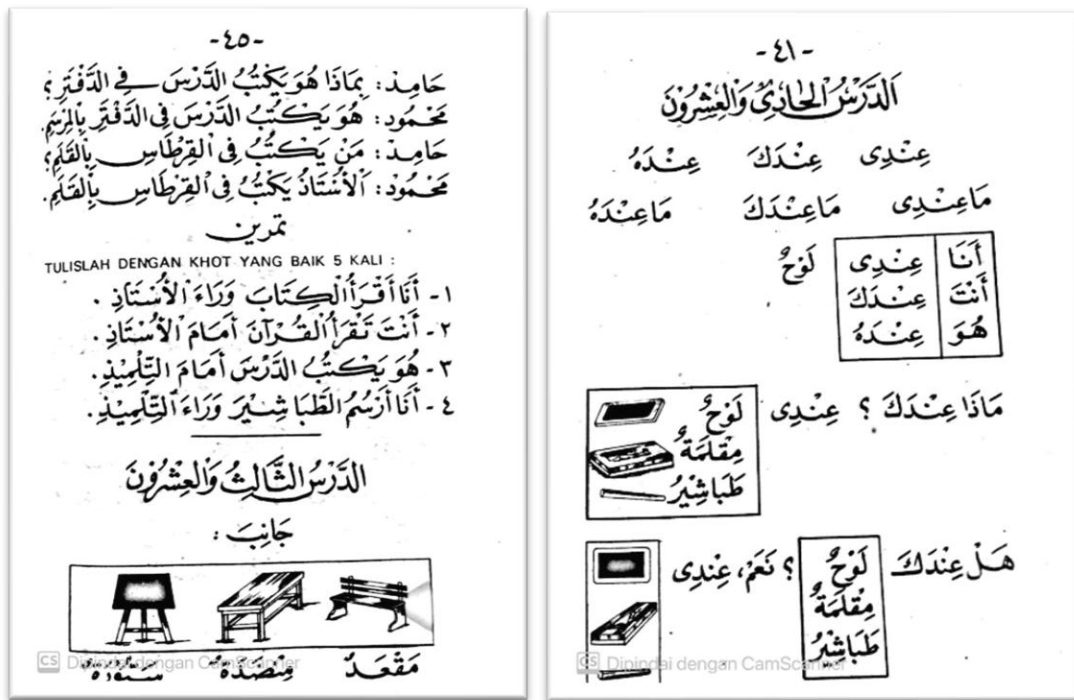 -٤٥-
حَامِد : بِمَاذَا هُوَ يَكْتُبُ الدَّرْسَ فِي الدَّفْتَرِ ؟
مَحْمُود : هُوَ يَكْتُبُ الدَّرْسَ فِى الدَّفْتَرِ بِالْمِرْسَمِ.
حَامِد : مَنْ يَكْتُبُ فِى الْقِرْطَاسِ بِالْقَلَمِ ؟
مَحْمُود : اَلْأُسْتَاذُ يَكْتُبُ فِى الْقِرْطَاسِ بِالْقَلَمِ.
تمرين
TULISLAH DENGAN KHOT YANG BAIK 5 KALI :
١- أَنَا أَقْرَأُ الْكِتَابَ وَرَاءَ الْأُسْتَاذِ .
٢- أَنْتَ تَقْرَأُ الْقُرْآنَ أَمَامَ الْأُسْتَاذِ .
٣- هُوَ يَكْتُبُ الدَّرْسَ أَمَامَ التِّلْمِيْذِ .
٤- أَنَا أَرْسُمُ الطَّبَاشِيْرَ وَرَاءَ التِّلْمِيْذِ .
الدَّرْسُ الثَّالِثُ وَالْعِشْرُوْنَ
جَانِبَ :
مَقْعَدٌ مِنْضَدَةٌ سَبُّوْرَةٌ
CS Dipindai dengan CamScanner
-٤١-
اَلدَّرْسُ الْحَادِى وَالْعِشْرُوْنَ
عِنْدِى عِنْدَكَ عِنْدَهُ
مَاعِنْدِى مَاعِنْدَكَ مَاعِنْدَهُ
أَنَا عِنْدِى لَوْحٌ
أَنْتَ عِنْدَكَ
هُوَ عِنْدَهُ
مَاذَا عِنْدَكَ ؟ عِنْدِى لَوْحٌ
مِقْلَمَةٌ
طَبَاشِيْرُ
هَلْ عِنْدَكَ لَوْحٌ ؟ نَعَمْ، عِنْدِى
مِقْلَمَةٌ
طَبَاشِيْرُ
CS Dipindai dengan CamScanner